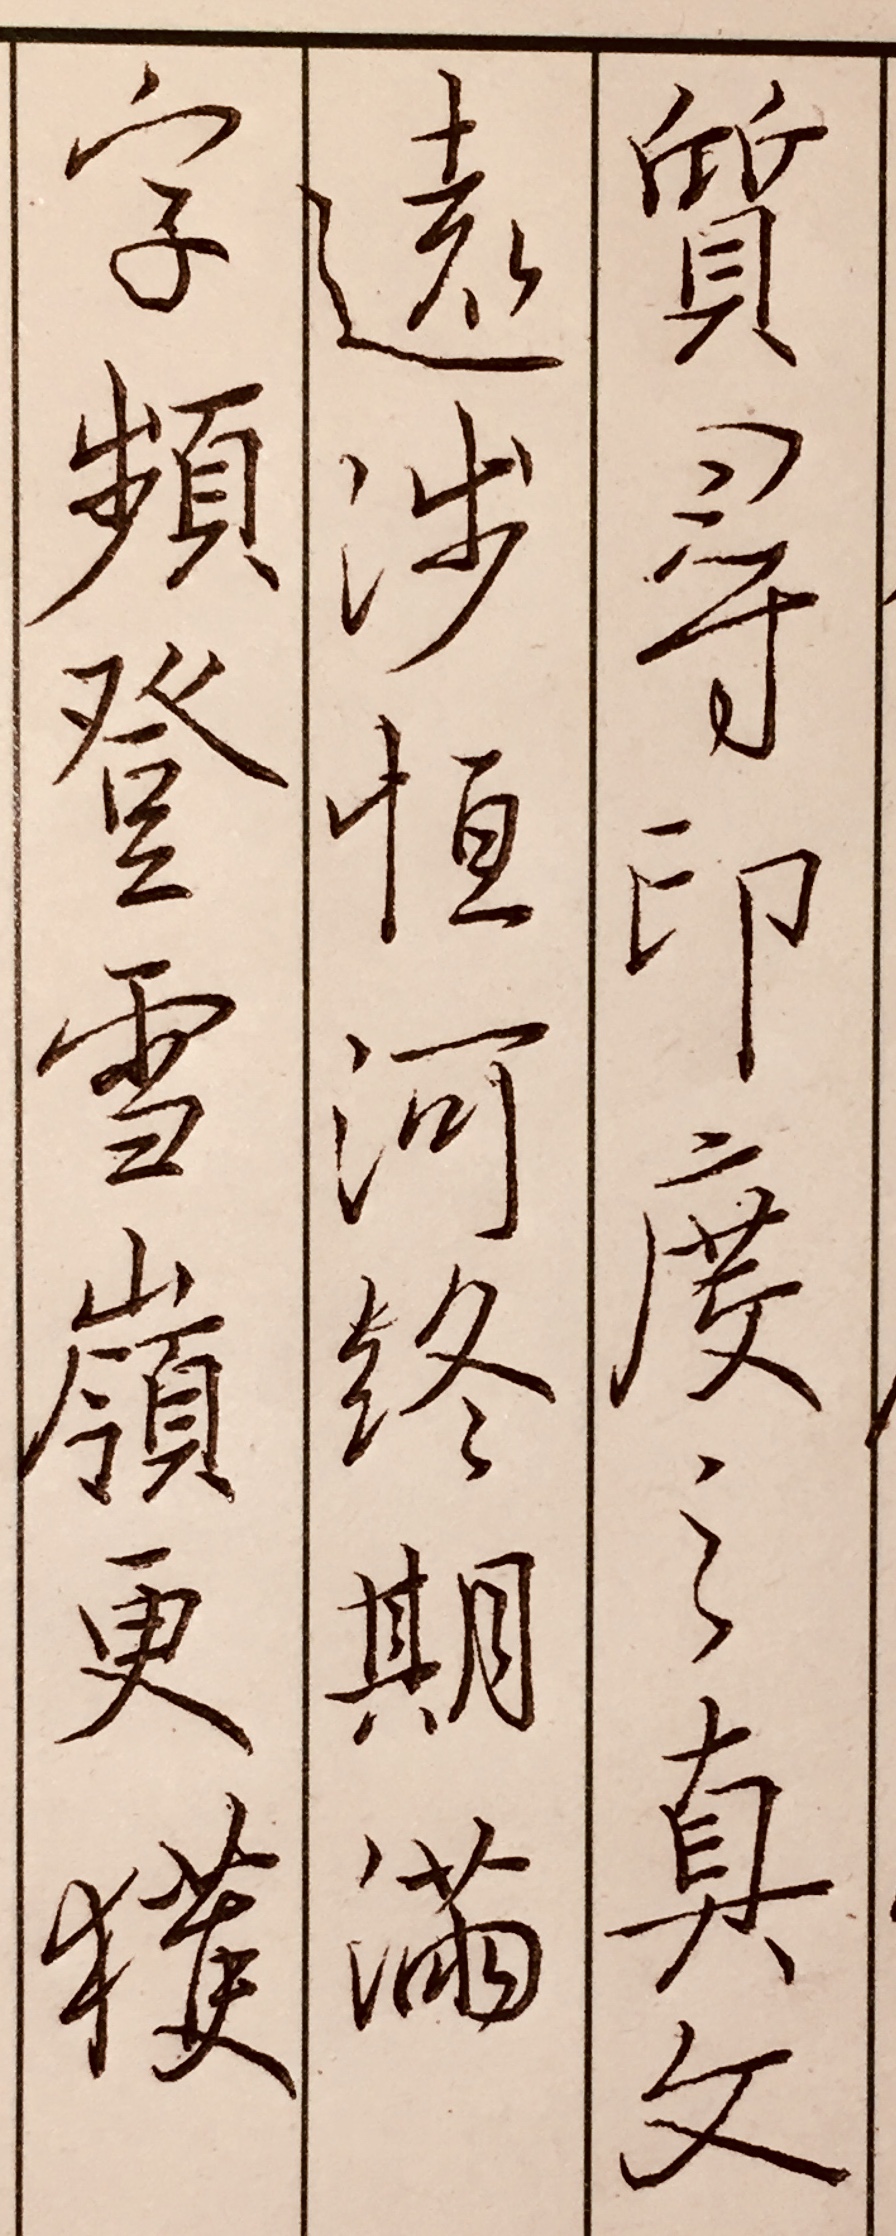 質尋印度之真文
遠涉恒河終期滿
字頻登雪嶺更獲